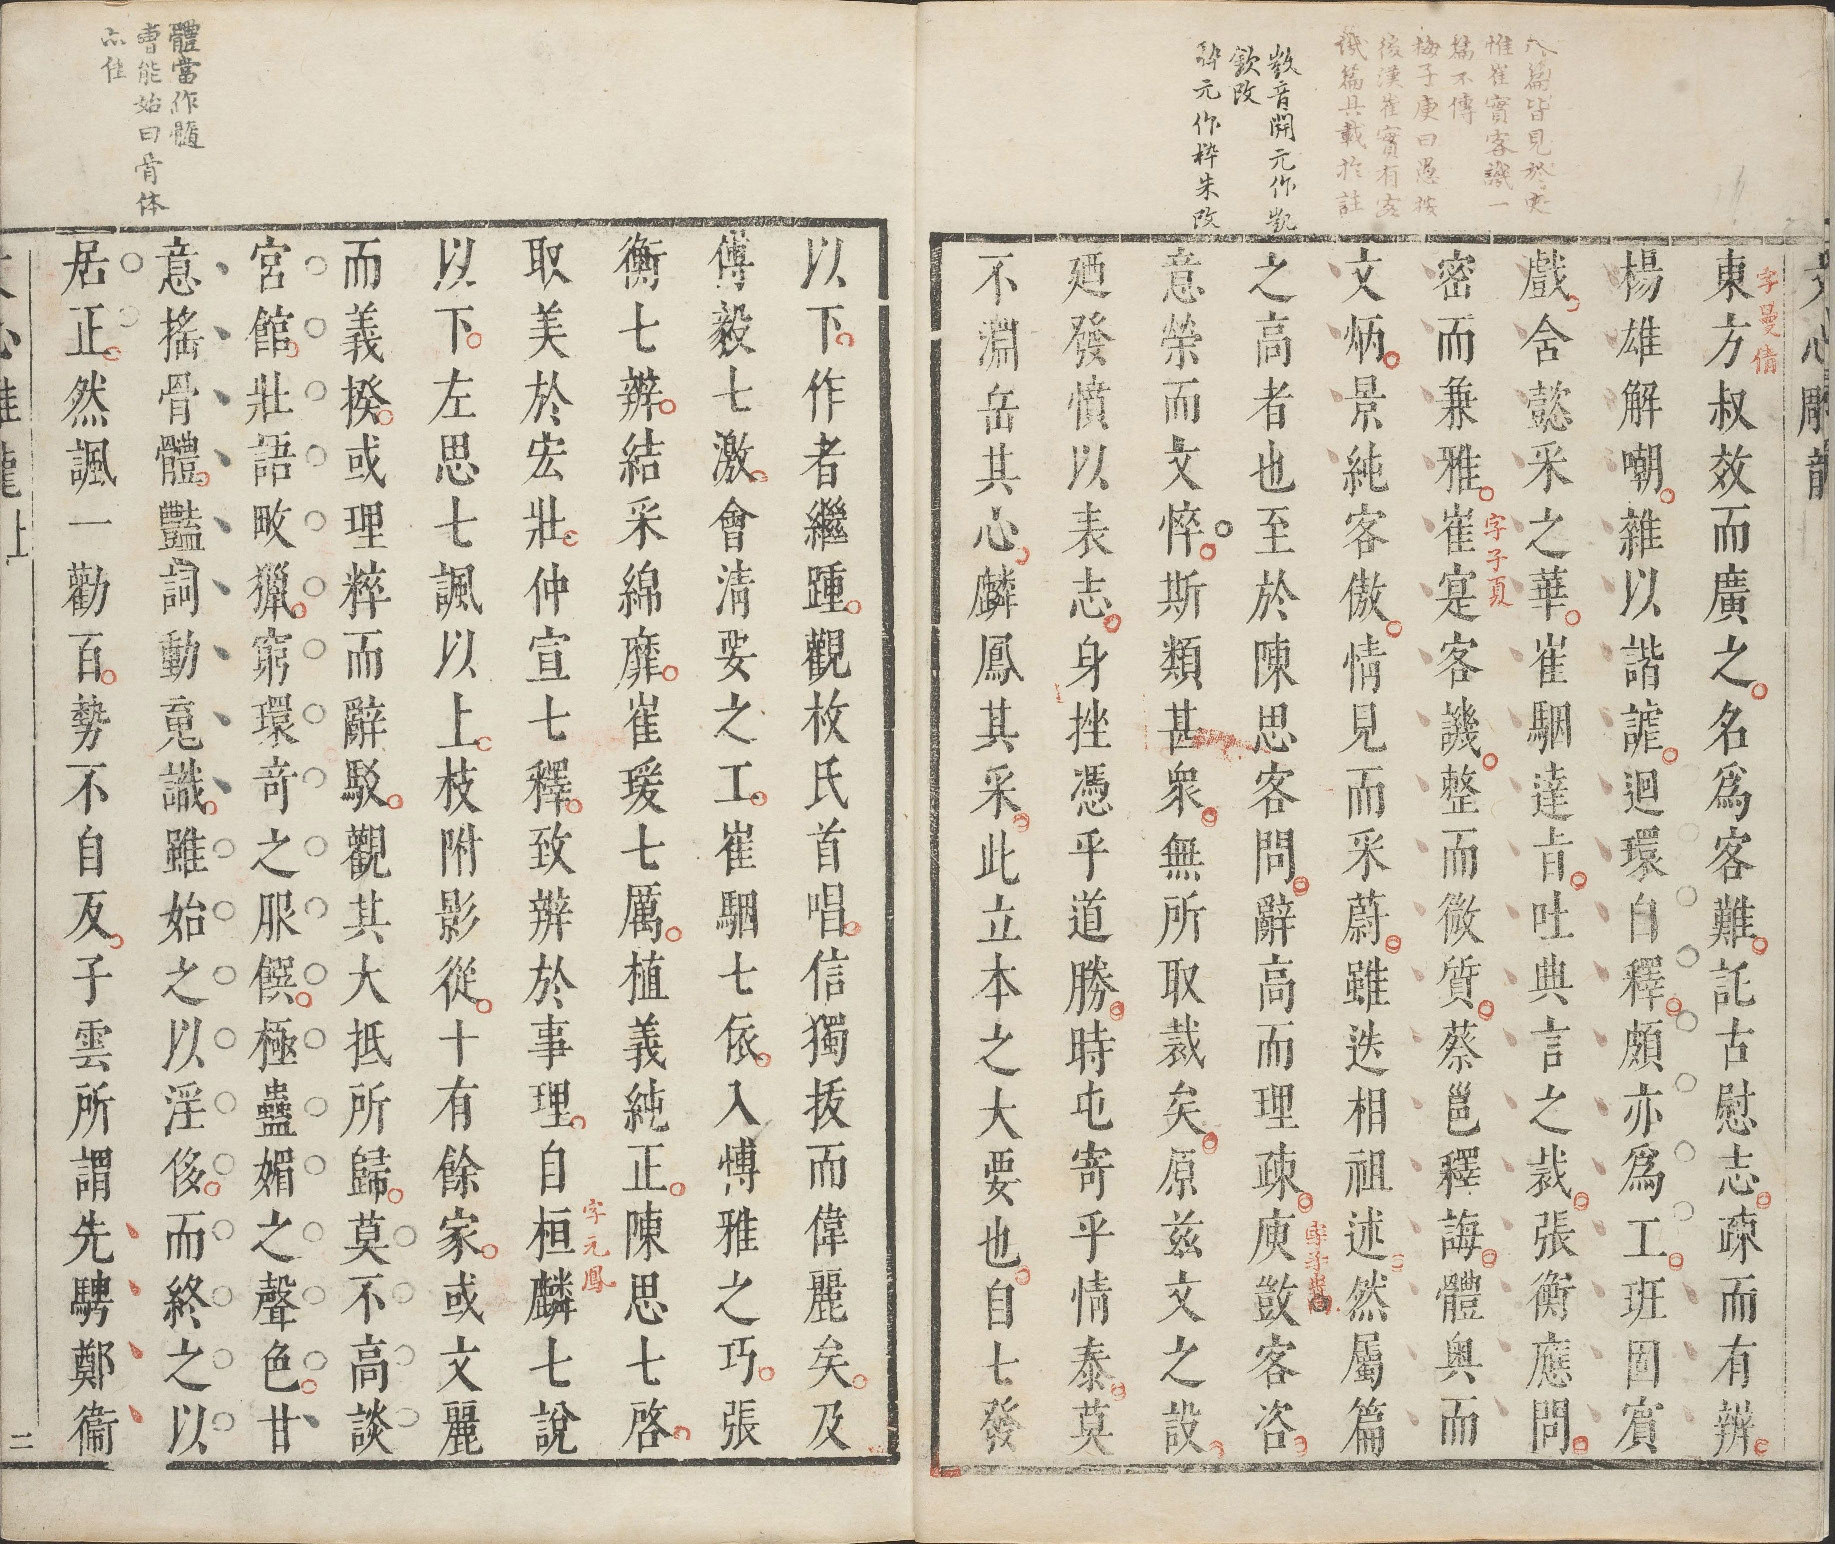 八篇皆見於史
惟崔寔客譏一
篇不傳
梅子庚曰愚按
後漢崔寔有客
譏篇具載於註
敱音開元作凱
欽改
悴元作粹朱改
文心雕龍
東方叔效而廣之名為客難託古慰志疎而有辨
字曼倩
楊雄解嘲雜以諧謔迴環自釋頗亦為工班固賓
戲含懿采之華崔駰達旨吐典言之裁張衡應問
密而兼雅崔寔客譏整而微質蔡邕釋誨體奥而
字子真
文炳景純客傲情見而采蔚雖迭相祖述然屬篇
之高者也至於陳思客問辭高而理疎庾敱客咨
意榮而文悴斯類甚衆無所取裁矣原兹文之設
廼發憤以表志身挫憑乎道勝時屯寄乎情泰莫
不淵岳其心麟鳳其采此立本之大要也自七發
以下作者繼踵觀枚氏首唱信獨拔而偉麗矣及
傅毅七激會清要之工崔駰七依入愽雅之巧張
衡七辨結采綿靡崔瑗七厲植義純正陳思七啓
取美於宏壯仲宣七釋致辨於事理自桓麟七說
字元鳳
以下左思七諷以上枝附影從十有餘家或文麗
而義揆或理粹而辭駁觀其大抵所歸莫不高談
宮館壯語畋獵窮環竒之服饌極蠱媚之聲色甘
意揺骨體豔詞動䰟識雖始之以淫侈而終之以
居正然諷一勸百勢不自反子雲所謂先騁鄭衞
體當作髓
曹能始曰骨体
亦佳
文心雕龍上
二